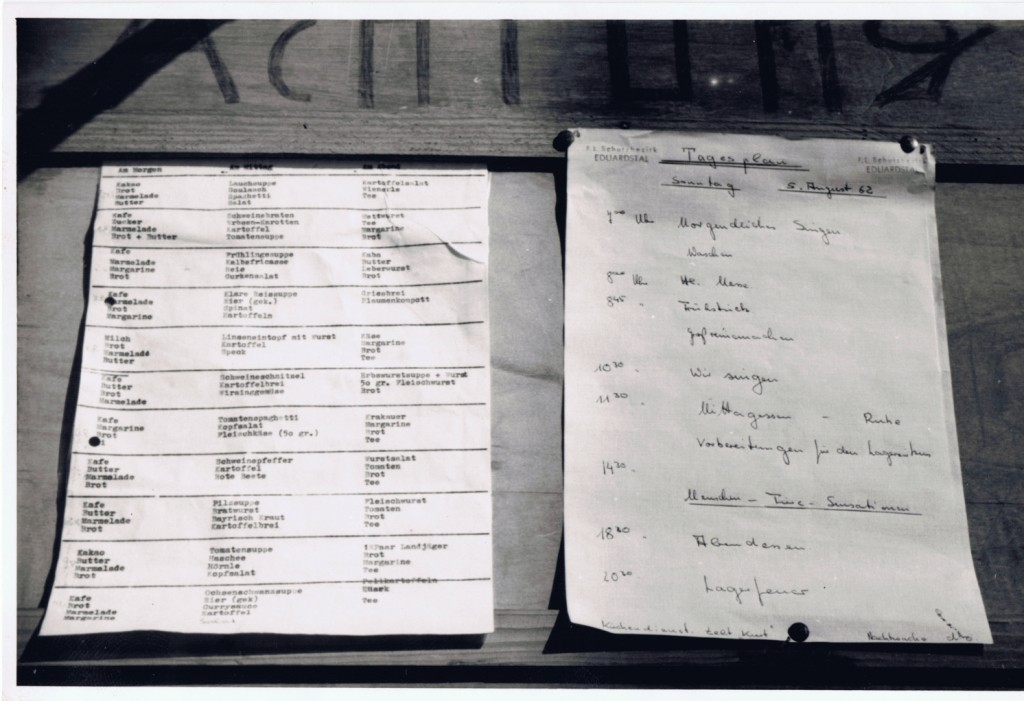 ACHTUNG
Am Morgen Am Mittag Am Abend
Kakao Lauchsuppe Kartoffelsalat
Brot Goulasch Wienerle
Marmelade Spaghetti Tee
Butter Salat
Kafe Schweinebraten Mettwurst
Zucker Erbsen-Karotten Tee
Marmelade Kartoffel Margarine
Brot + Butter Tomatensuppe Brot
Kafe Frühlingsuppe Kaba
Marmelade Kalbsfricasse Butter
Margarine Reis Leberwurst
Brot Gurkensalat Brot
Kafe Klare Reissuppe Griesbrei
Marmelade Eier (gek.) Pflaumenkompott
Brot Spinat
Margarine Kartoffeln
Milch Linseneintopf mit Wurst Käse
Brot Kartoffel Margarine
Marmelade Speck Brot
Butter Tee
Kafe Schweineschnitzel Erbswurstsuppe + Wurst
Butter Kartoffelbrei 50 gr. Fleischwurst
Brot Wirsinggemüse Brot
Marmelade
Kafe Tomatenspaghetti Krakauer
Margarine Kopfsalat Margarine
Brot Fleischkäse (50 gr.) Brot
Tee
Kafe Schweinepfeffer Wurstsalat
Butter Kartoffel Tomaten
Marmelade Rote Beete Brot
Brot Tee
Kafe Pilzsuppe Fleischwurst
Butter Bratwurst Tomaten
Marmelade Bayrisch Kraut Brot
Brot Kartoffelbrei Tee
Kakao Tomatensuppe Landjäger
Butter Haschee Brot
Marmelade Hörnle Margarine
Brot Kopfsalat Tee
Pellkartoffeln
Kafe Ochsenschwanzsuppe Quark
Brot Eier (gek)
Marmelade Currysauce Tee
Margarine Kartoffel
EDUARDSTAL
EDUARDSTAL
Tagesplan
Sonntag 5. August 62
7 00 Uhr Morgendliches Singen
Waschen
8 00 Uhr Hl. Messe
8 45 " Frühstück
10 30 " Wir singen
11 30 " Mittagessen - Ruhe
Vorbereitungen für den Lagerzirkus
14 30 "
Menschen - Tiere - Sensationen
18 30 " Abendessen
20 30 Lagerfeuer
Küchendienst: Zelt "Kurt" Nachtwache dito